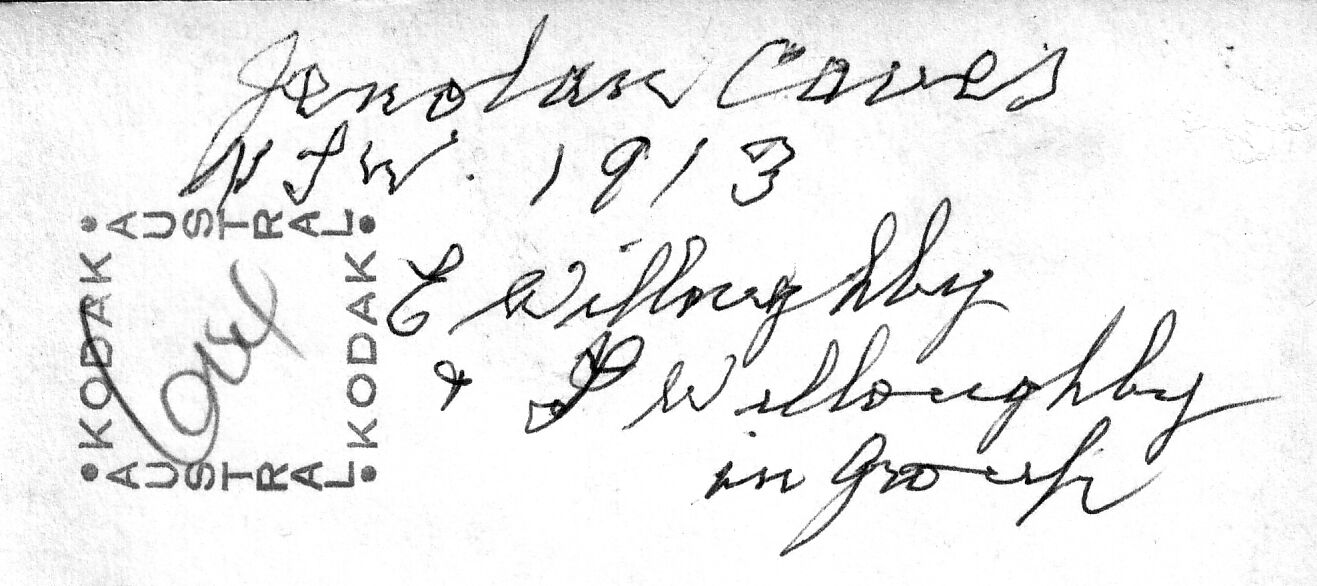 Jenolan Caves
NSW. 1913
E Willoughby
& Willoughby
in group
• AUSTRAL •
KODAK
KODAK
• AUSTRAL •